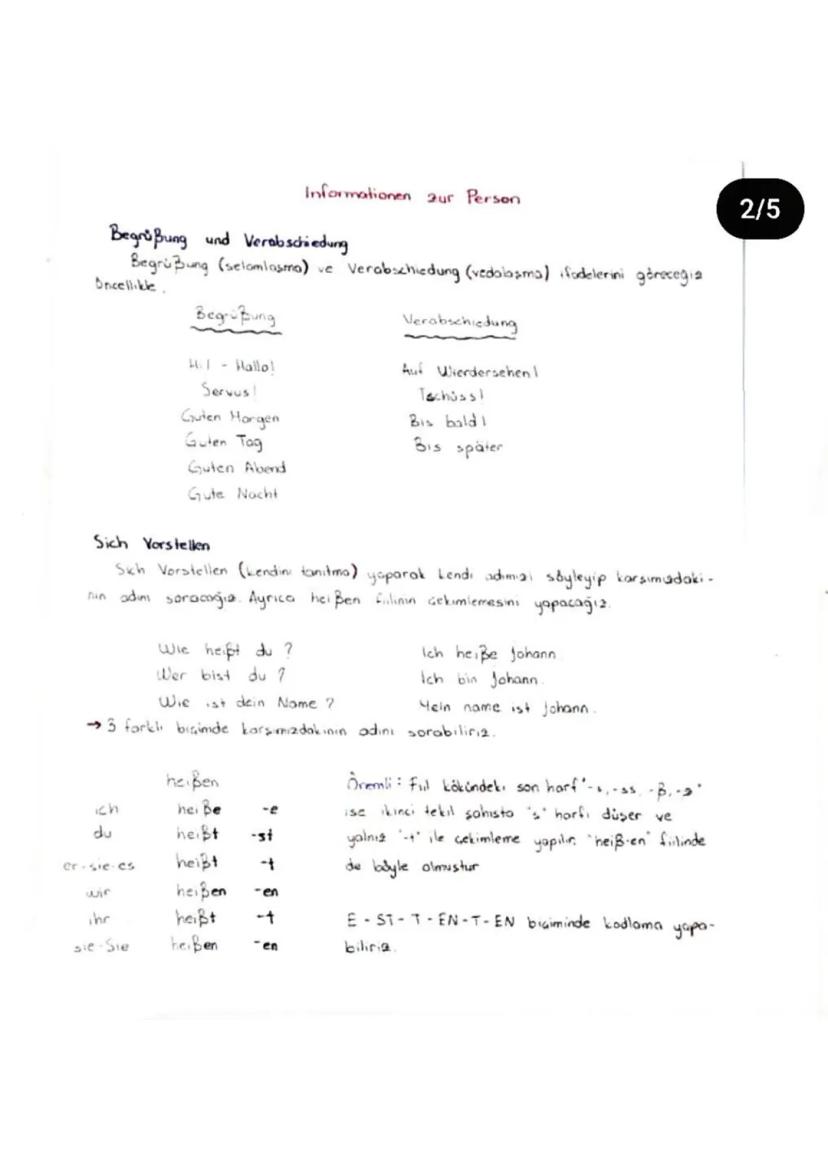 Informationen zur Person
2/5
Begrüßung und Verabschiedung
Begrüßung (selamlaşma) ve Verabschiedung (vedalaşma) ifadelerini göreceğiz
öncellikle.
Begrüßung
Hi! - Hallo!
Servus!
Guten Morgen
Guten Tag
Guten Abend
Gute Nacht
Verabschiedung
Auf Wierdersehen!
Tschüss!
Bis bald!
Bis später
Sich Vorstellen
Sich Vorstellen (kendini tanıtma) yaparak kendi adımızı söyleyip karşımızdaki-
nin adını soracağız. Ayrıca heißen fiilinin çekimlemesini yapacağız.
Wie heißt du ?
Wer bist du ?
Wie ist dein Name ?
Ich heiße Johann.
Ich bin Johann.
Mein name ist Johann.
→ 3 farklı biçimde karşımızdakinin adını sorabiliriz.
heißen
ich heiße -e
du heißt -st
er-sie-es heißt -t
wir heißen -en
ihr heißt -t
sie-Sie heißen -en
Önemli : Fiil kökündeki son harf "-s, -ss, -ß, -z"
ise ikinci tekil şahısta "s" harfi düşer ve
yalnız "-t" ile çekimleme yapılır. "heiß-en" fiilinde
de böyle olmuştur
E - ST - T - EN - T - EN biçiminde kodlama yapa-
biliriz.